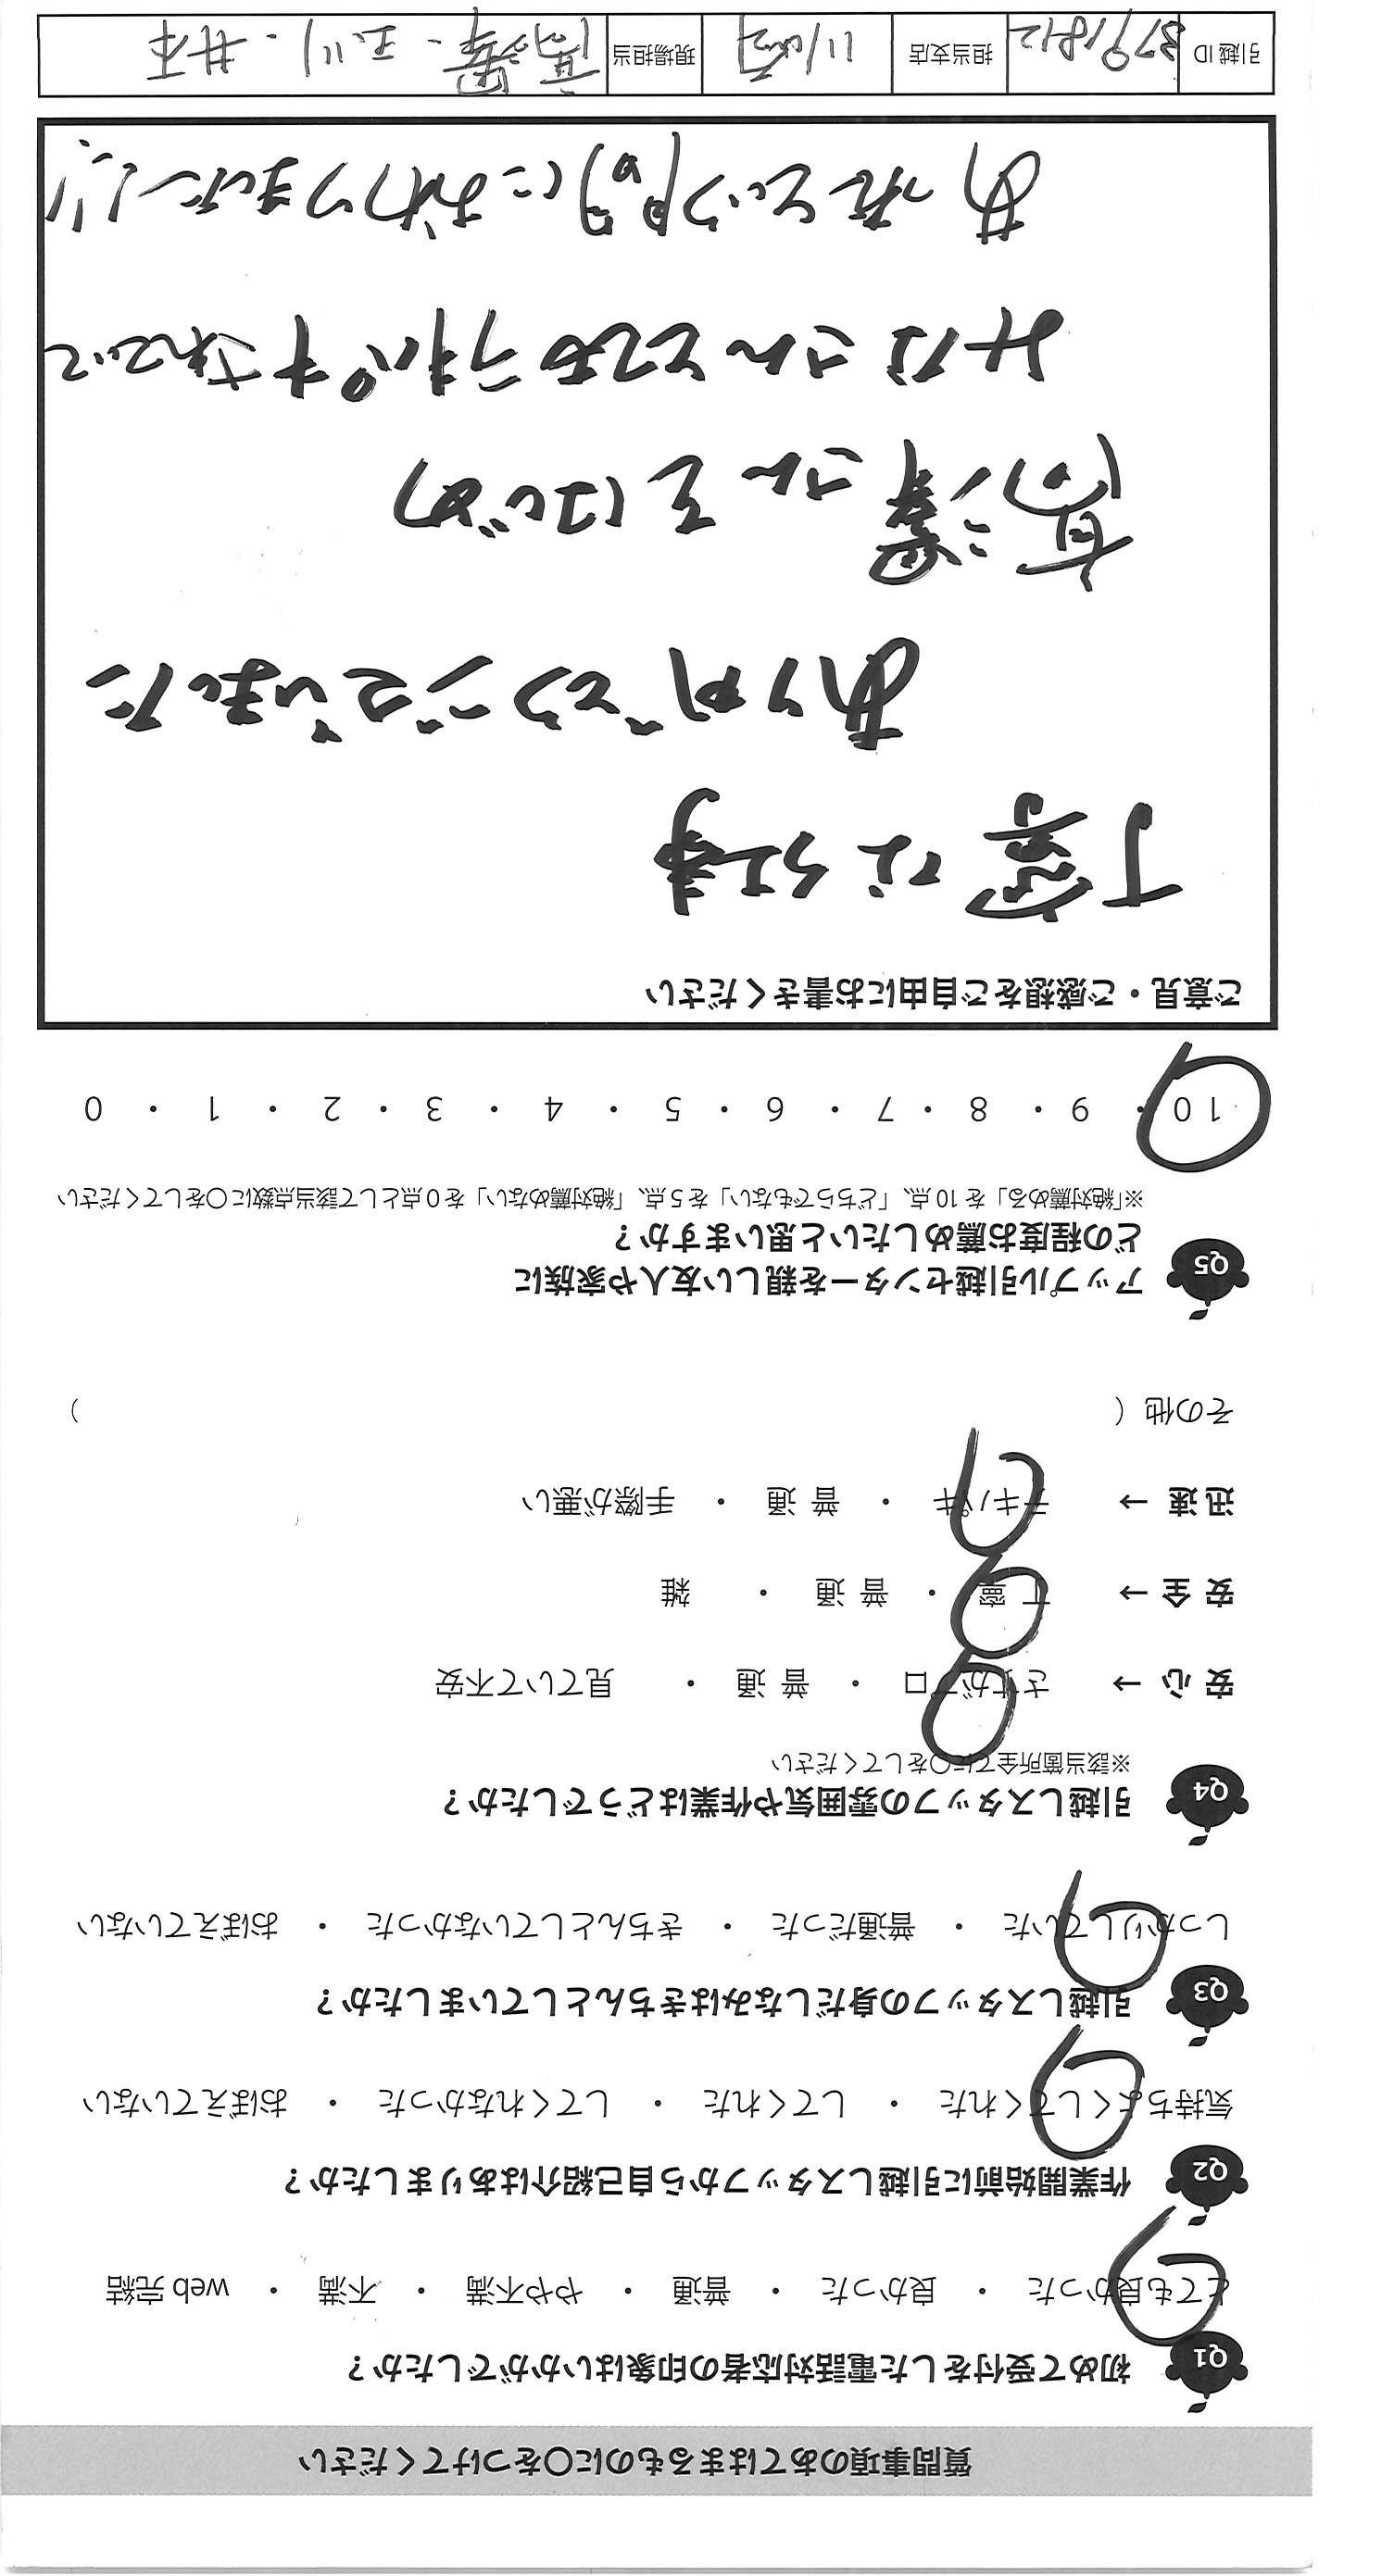 質問事項のあてはまるものに〇をつけてください
Q1 初めて受付をした電話対応者の印象はいかがでしたか？
とても良かった ・ 良かった ・ 普通 ・ やや不満 ・ 不満 ・ web 完結
Q2 作業開始前に引越しスタッフから自己紹介はありましたか？
気持ちよくしてくれた ・ してくれた ・ してくれなかった ・ おぼえていない
Q3 引越しスタッフの身だしなみはきちんとしていましたか？
しっかりしていた ・ 普通だった ・ きちんとしていなかった ・ おぼえていない
Q4 引越しスタッフの雰囲気や作業はどうでしたか？
※該当箇所全てに〇をしてください
安 心 → さすがプロ ・ 普 通 ・ 見ていて不安
安 全 → 丁 寧 ・ 普 通 ・ 雑
迅 速 → テキパキ ・ 普 通 ・ 手際が悪い
その他（ ）
Q5 アップル引越センターを親しい友人や家族に
どの程度お薦めしたいと思いますか？
※「絶対薦める」を 10 点、「どちらでもない」を 5 点、「絶対薦めない」を 0 点として該当点数に〇をしてください
10 ・ 9 ・ 8 ・ 7 ・ 6 ・ 5 ・ 4 ・ 3 ・ 2 ・ 1 ・ 0
ご意見・ご感想をご自由にお書きください
丁寧な仕事
ありがとうございました
髙澤さんをはじめ
みなさんとてもテキパキされていて
あっという間におわりました!!
引越 ID 3791812 担当支店 川崎 現場担当 髙澤・玉川・井本